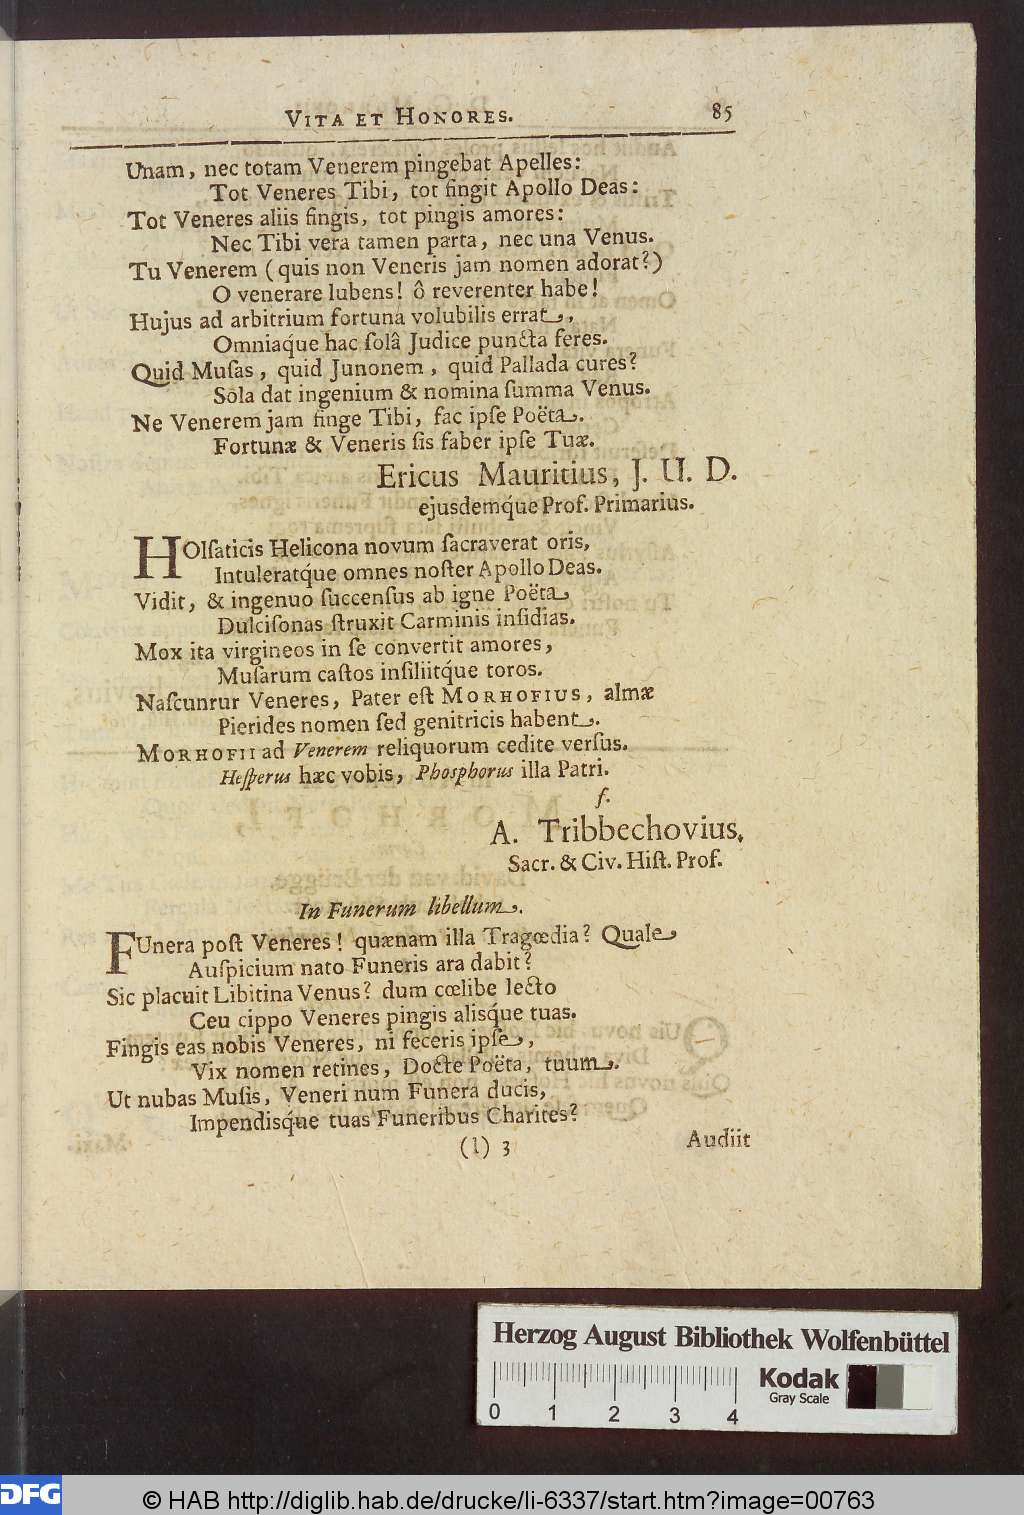 VITA ET HONORES. 85
Unam, nec totam Venerem pingebat Apelles:
Tot Veneres Tibi, tot fingit Apollo Deas:
Tot Veneres aliis fingis, tot pingis amores:
Nec Tibi vera tamen parta, nec una Venus.
Tu Venerem (quis non Veneris jam nomen adorat?)
O venerare lubens! ô reverenter habe!
Hujus ad arbitrium fortuna volubilis errat,
Omniaq́ue hac ſolâ Judice puncta feres.
Quid Muſas, quid Junonem, quid Pallada cures?
Sola dat ingenium & nomina ſumma Venus.
Ne Venerem jam finge Tibi, fac ipſe Poëta.
Fortunæ & Veneris ſis faber ipſe Tuæ.
Ericus Mauritius, J. U. D.
ejusdemq́ue Prof. Primarius.
HOlſaticis Helicona novum ſacraverat oris,
Intuleratq́ue omnes noſter Apollo Deas.
Vidit, & ingenuo ſuccenſus ab igne Poëta
Dulciſonas ſtruxit Carminis inſidias.
Mox ita virgineos in ſe convertit amores,
Muſarum caſtos inſiliitq́ue toros.
Naſcunrur Veneres, Pater eſt MORHOFIUS, almæ
Pierides nomen ſed genitricis habent.
MORHOFII ad Venerem reliquorum cedite verſus.
Heſperus hæc vobis, Phosphorus illa Patri.
f.
A. Tribbechovius,
Sacr. & Civ. Hiſt. Prof.
In Funerum libellum.
FUnera poſt Veneres! quænam illa Tragœdia? Quale
Auſpicium nato Funeris ara dabit?
Sic placuit Libitina Venus? dum cœlibe lecto
Ceu cippo Veneres pingis alisq́ue tuas.
Fingis eas nobis Veneres, ni feceris ipſe,
Vix nomen retines, Docte Poëta, tuum.
Ut nubas Muſis, Veneri num Funera ducis,
Impendisq́ue tuas Funeribus Charites?
(l) 3 Audiit
Herzog August Bibliothek Wolfenbüttel
Kodak
Gray Scale
0 1 2 3 4
DFG
© HAB http://diglib.hab.de/drucke/li-6337/start.htm?image=00763